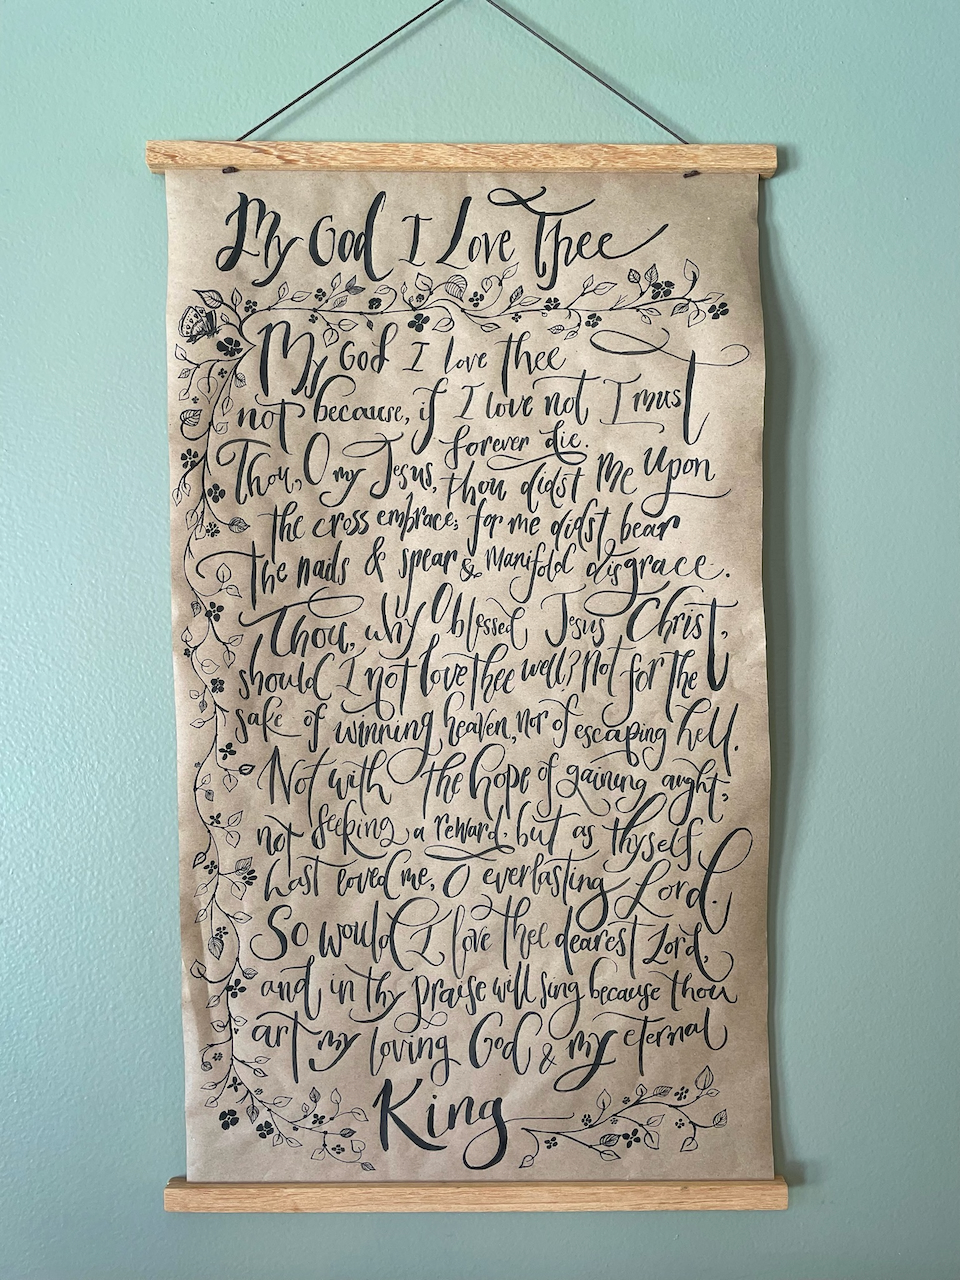 My God I Love Thee
My God I love thee
not because, if I love not I must
forever die.
Thou, O my Jesus, thou didst me upon
the cross embrace; for me didst bear
the nails & spear & Manifold disgrace.
Thou, why O blessed Jesus Christ,
should I not love thee well? Not for the
sake of winning heaven, nor of escaping hell.
Not with the hope of gaining aught,
not seeking a reward, but as thyself
hast loved me, O everlasting Lord.
So would I love thee dearest Lord,
and in thy praise will sing because thou
art my loving God & my eternal
King